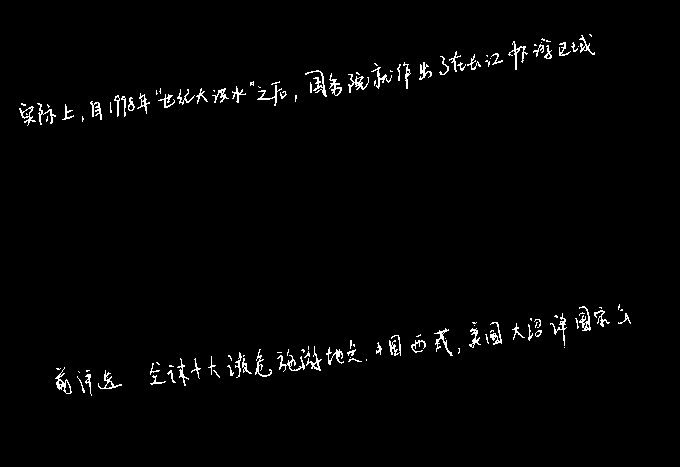 实际上,自1998年“世纪大洪水”之后,国务院就作出了在长江中下游区域
前评选 全球十大濒危旅游地点.中国西藏,美国大沼泽国家公